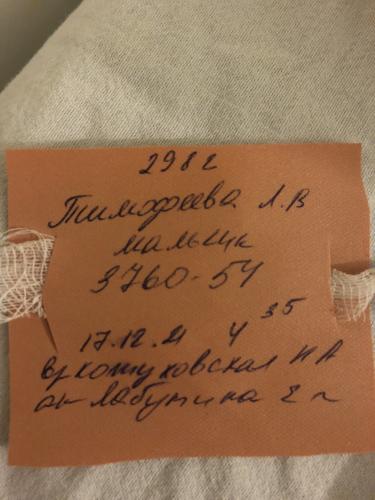 2982
Тимофеева Л.В
мальчик
3760-54
17.12.21 4 35
Вр Кожуховская И А
ак Лабутина Е л